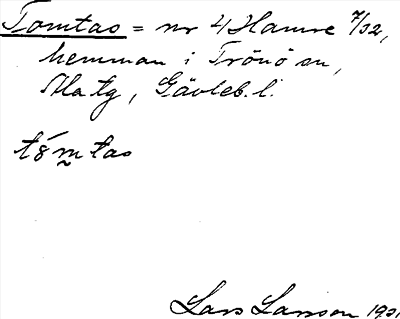 Tomtas = nr 4 Hamre 7/32,
hemman i Trönö sn,
Ala tg, Gävleb. l.
Lars Larsson 1931